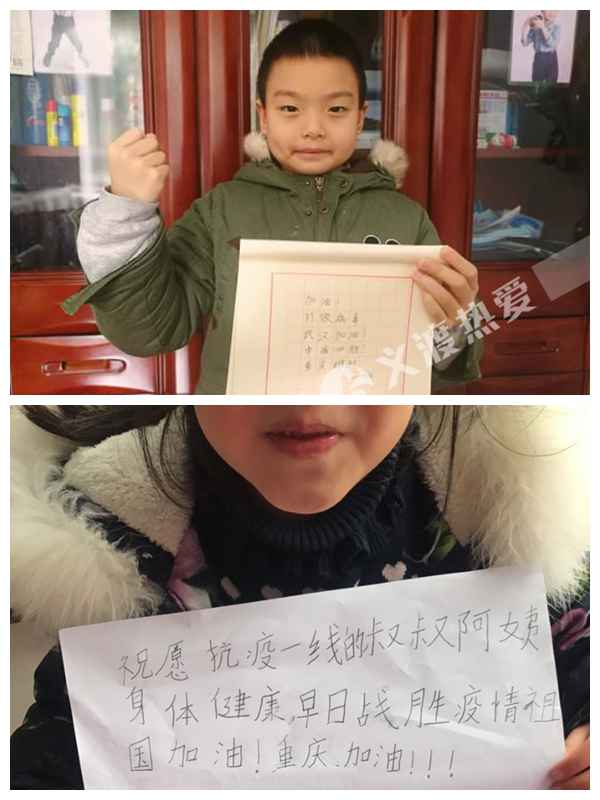 加油！
打败病毒
武汉加油！
中国加油！
义渡热爱
祝愿抗疫一线的叔叔阿姨
身体健康,早日战胜疫情祖
国加油！重庆、加油！！！